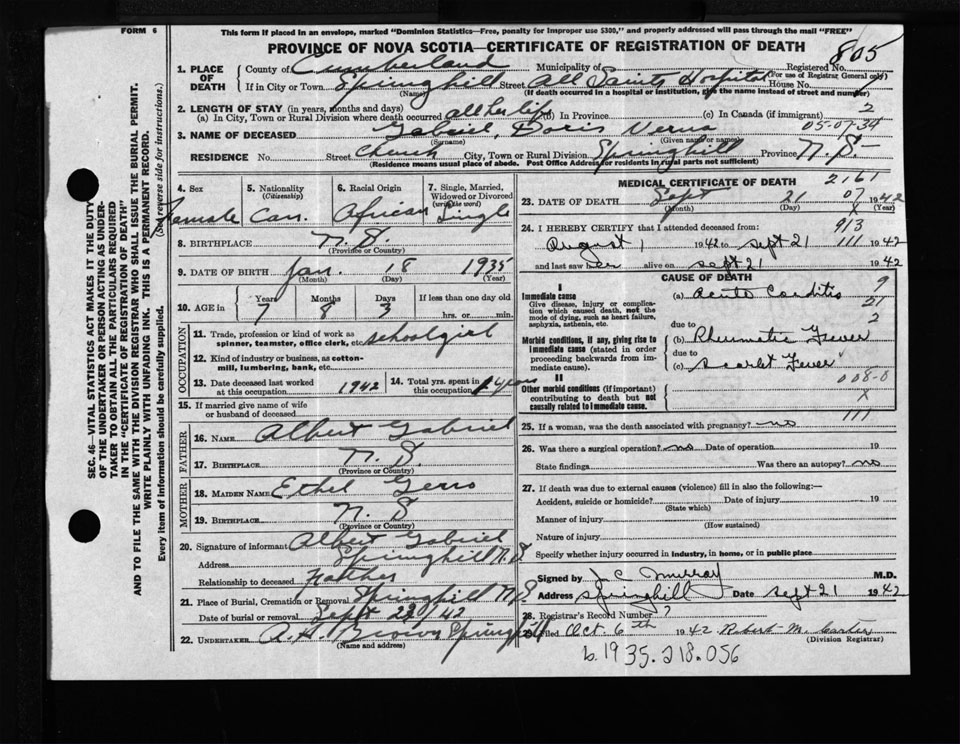 FORM 6
This form if placed in an envelope, marked "Dominion Statistics—Free, penalty for improper use $300," and properly addressed will pass through the mail "FREE"
PROVINCE OF NOVA SCOTIA—CERTIFICATE OF REGISTRATION OF DEATH
805
1. PLACE OF DEATH
County of Cumberland Municipality of Registered No.
(For use of Registrar General only)
If in City or Town Springhill Street All Saints Hospital House No.
(Name) (If death occurred in a hospital or institution, give the name instead of street and number)
2. LENGTH OF STAY (in years, months and days)
(a) In City, Town or Rural Division where death occurred all her life (b) In Province (c) In Canada (if immigrant) 2
05-07-34
3. NAME OF DECEASED Gabriel, Doris Verna
(Surname) (Given name or names)
RESIDENCE No. Street City, Town or Rural Division Springhill Province N.S.
(Residence means usual place of abode. Post Office Address for residents in rural parts not sufficient)
4. Sex Female
5. Nationality (Citizenship) Can.
6. Racial Origin African
7. Single, Married, Widowed or Divorced (write the word) Single
8. BIRTHPLACE N.S.
(Province or Country)
9. DATE OF BIRTH Jan. 18 1935
(Month) (Day) (Year)
10. AGE in Years 7 Months 8 Days 3 If less than one day old
hrs. or min.
OCCUPATION
11. Trade, profession or kind of work as spinner, teamster, office clerk, etc. schoolgirl
12. Kind of industry or business, as cotton-mill, lumbering, bank, etc.
13. Date deceased last worked at this occupation 1942
14. Total yrs. spent in this occupation
15. If married give name of wife or husband of deceased
FATHER
16. NAME Albert Gabriel
17. BIRTHPLACE N.S.
(Province or Country)
MOTHER
18. MAIDEN NAME Ethel
19. BIRTHPLACE N.S
(Province or Country)
20. Signature of informant Albert Gabriel
Address Springhill N.S
Relationship to deceased Father
21. Place of Burial, Cremation or Removal Springhill N.S
Date of burial or removal Sept 22/42
22. UNDERTAKER A.H. Brown Springhill
(Name and address)
MEDICAL CERTIFICATE OF DEATH 2161
23. DATE OF DEATH Sept 21 1942
07
(Month) (Day) (Year)
24. I HEREBY CERTIFY that I attended deceased from: 913
August 1 1942 to Sept 21 1942
111
and last saw her alive on Sept 21 1942
CAUSE OF DEATH
I
Immediate cause
Give disease, injury or complication which caused death, not the mode of dying, such as heart failure, asphyxia, asthenia, etc.
(a) Acute Carditis
due to
Morbid conditions, if any, giving rise to immediate cause (stated in order proceeding backwards from immediate cause).
(b) Rheumatic Fever
due to
(c) Scarlet Fever
II
Other morbid conditions (if important) contributing to death but not causally related to immediate cause.
008-0
X
111
25. If a woman, was the death associated with pregnancy? no
26. Was there a surgical operation? no Date of operation 19
State findings Was there an autopsy? no
27. If death was due to external causes (violence) fill in also the following:—
Accident, suicide or homicide? Date of injury 19
(State which)
Manner of injury
(How sustained)
Nature of injury
Specify whether injury occurred in industry, in home, or in public place
Signed by J. C. Murray M.D.
Address Springhill Date Sept 21 1942
28. Registrar's Record Number 7
29. Filed Oct. 6th 1942 Robert M. Carter
(Division Registrar)
b.1935.218.056
SEC. 46—VITAL STATISTICS ACT MAKES IT THE DUTY
OF THE UNDERTAKER OR PERSON ACTING AS UNDER-
TAKER TO OBTAIN ALL THE PARTICULARS REQUIRED
IN THE "CERTIFICATE OF REGISTRATION OF DEATH"
AND TO FILE THE SAME WITH THE DIVISION REGISTRAR WHO SHALL ISSUE THE BURIAL PERMIT.
WRITE PLAINLY WITH UNFADING INK. THIS IS A PERMANENT RECORD.
Every item of information should be carefully supplied. (See reverse side for instructions.)